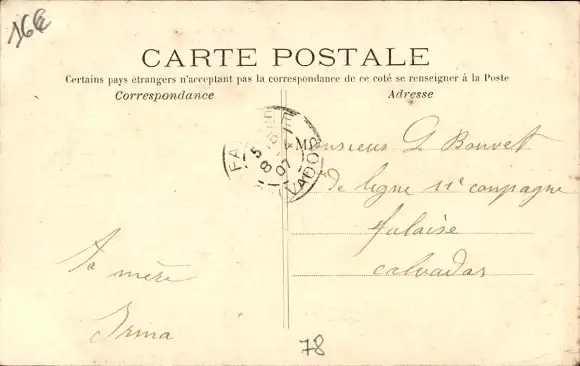 16€
CARTE POSTALE
Certains pays étrangers n'acceptant pas la correspondance de ce coté se renseigner à la Poste
Correspondance
Adresse
Monsieur G Bouvet
de ligne 11e compagne
falaise
calvados
Ta mère
Irma
FA
5
8
07
VADOS
78